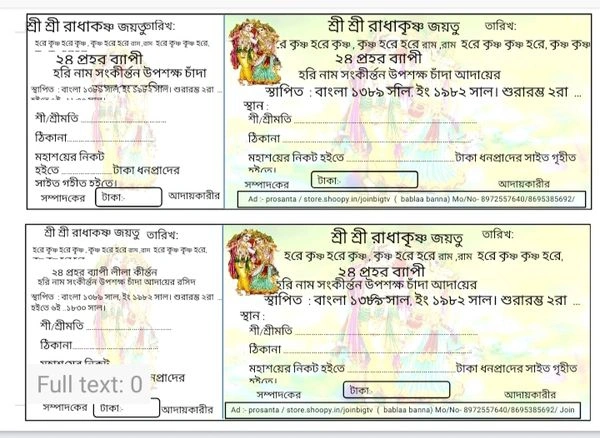 শ্রী শ্রী রাধাকৃষ্ণ জয়তু তারিখ:
হরে কৃষ্ণ হরে কৃষ্ণ , কৃষ্ণ হরে হরে রাম ,রাম হরে কৃষ্ণ কৃষ্ণ হরে,
২৪ প্রহর ব্যাপী
হরি নাম সংকীর্ত্তন উপশক্ষ চাঁদা
স্থাপিত : বাংলা ১৩৮৯ সাল, ইং ১৯৮২ সাল। শুরারম্ভ ২রা ...
শী/শ্রীমতি
ঠিকানা
মহাশয়ের নিকট
হইতে টাকা ধনপ্রাদের
সাইত গৃহীত হইতে।
সম্পাদকের টাকা:- আদায়কারীর
শ্রী শ্রী রাধাকৃষ্ণ জয়তু তারিখ:
রে কৃষ্ণ হরে কৃষ্ণ , কৃষ্ণ হরে হরে রাম ,রাম হরে কৃষ্ণ কৃষ্ণ হরে, কৃষ্ণ কৃষ্ণ
২৪ প্রহর ব্যাপী
হরি নাম সংকীর্ত্তন উপশক্ষ চাঁদা আদায়ের
স্থাপিত : বাংলা ১৩৮৯ সাল, ইং ১৯৮২ সাল। শুরারম্ভ ২রা ...
স্থান :
শী/শ্রীমতি
ঠিকানা
মহাশয়ের নিকট হইতে টাকা ধনপ্রাদের সাইত গৃহীত
সম্পাদকের টাকা:- আদায়কারীর
Ad :- prosanta / store.shoopy.in/joinbigtv ( bablaa banna) Mo/No- 8972557640/8695385692/
শ্রী শ্রী রাধাকৃষ্ণ জয়তু তারিখ:
হরে কৃষ্ণ হরে কৃষ্ণ , কৃষ্ণ হরে হরে রাম ,রাম হরে কৃষ্ণ কৃষ্ণ হরে,
২৪ প্রহর ব্যাপী লীলা কীর্ত্তন
হরি নাম সংকীর্ত্তন উপশক্ষ চাঁদা আদায়ের রসিদ
স্থাপিত : বাংলা ১৩৮৯ সাল, ইং ১৯৮২ সাল। শুরারম্ভ ২রা ...
হইতে ৬ই ..১৮৩০ সাল।
শী/শ্রীমতি
ঠিকানা
মহাশয়ের নিকট
নপ্রাদের
Full text: 0
সম্পাদকের টাকা:- আদায়কারীর
শ্রী শ্রী রাধাকৃষ্ণ জয়তু তারিখ:
হরে কৃষ্ণ হরে কৃষ্ণ , কৃষ্ণ হরে হরে রাম ,রাম হরে কৃষ্ণ কৃষ্ণ হরে,
২৪ প্রহর ব্যাপী
হরি নাম সংকীর্ত্তন উপশক্ষ চাঁদা আদায়ের
স্থাপিত : বাংলা ১৩৮৯ সাল, ইং ১৯৮২ সাল। শুরারম্ভ ২রা ...
স্থান :
শী/শ্রীমতি
ঠিকানা
মহাশয়ের নিকট হইতে টাকা ধনপ্রাদের সাইত গৃহীত
সম্পাদকের টাকা:- আদায়কারীর
Ad :- prosanta / store.shoopy.in/joinbigtv ( bablaa banna) Mo/No- 8972557640/8695385692/ Join